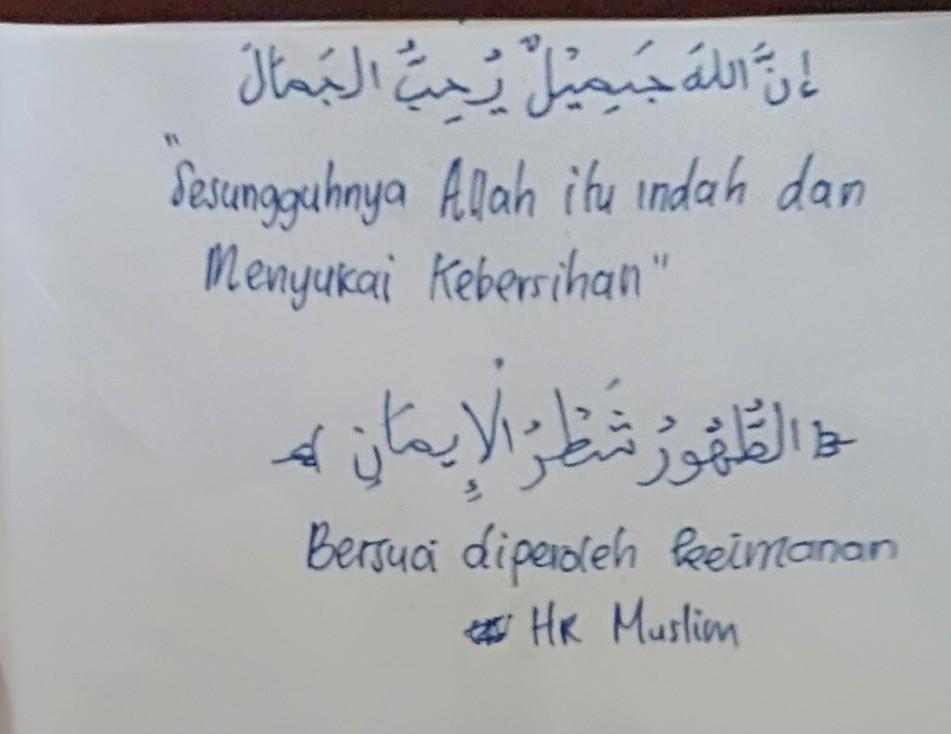 إنَّ اللهَ جَمِيْلٌ يُحِبُّ الجَمَالَ
"Sesungguhnya Allah itu indah dan
Menyukai Kebersihan"
الطُّهُورُ شَطْرُ الْإِيمَانِ
Bersuci diperoleh keimanan
HR Muslim